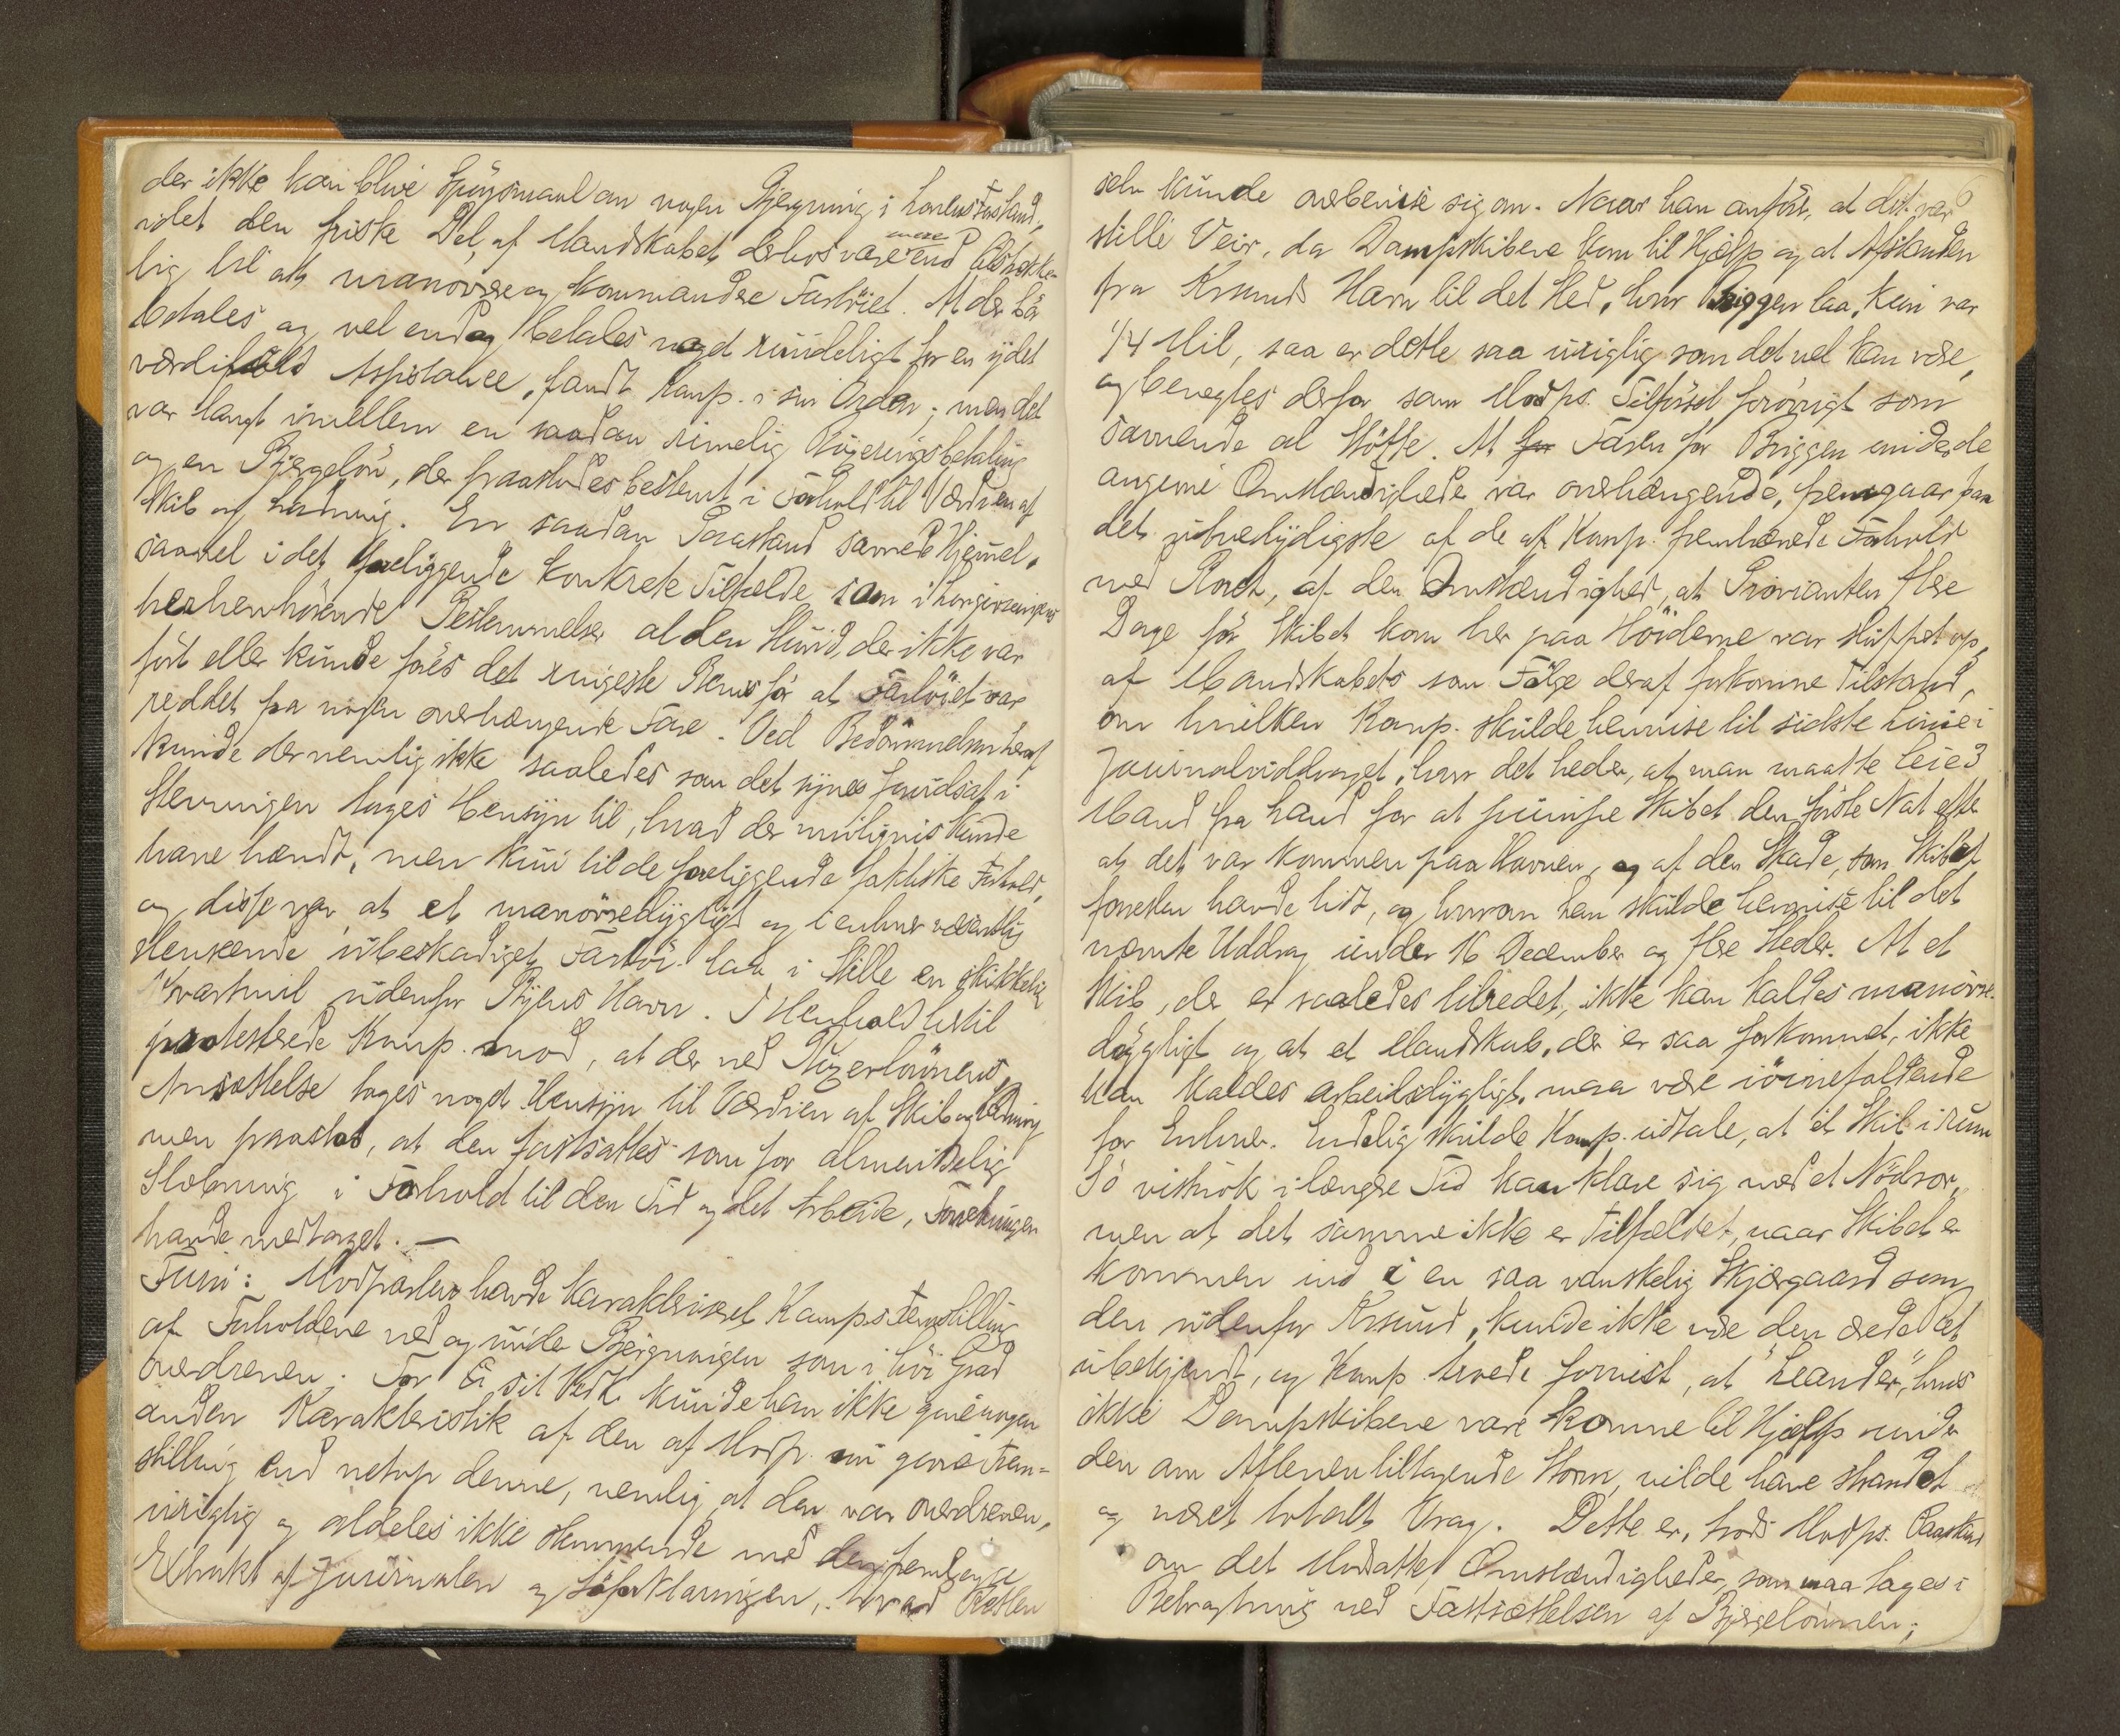 der ikke kan blive Spörgsmaal om nogen Bjergning i Lovens Forstand,
idet den friske Del af Mandskabet derhos være mere end tilstrække-
lig til at manövrere og kommandere Fartöiet. At der bör
betales og vel endog betales noget rundeligt for en ydet
værdifuld Assistance, fandt Komp. i sin Orden; men det
var langt imellem en saadan rimelig Bugseringsbetaling
og en Bjergelön, der paastodes bestemt i Forhold til Værdien af
Skib og Ladning. En saadan Paastand savnede Hjemmel,
saavel i det foreliggende konkrete Tilfælde som i Lovgivningens
herhenhörende Bestemmelser al den Stund, der ikke var
fört eller kunde föres det ringeste Bevis for at Fartöiet var
reddet fra nogen overhængende Fare. Ved Bedömmelsen heraf
kunde der nemlig ikke saaledes som det synes forudsat i
Stevningen tages Hensyn til, hvad der muligvis kunde
have hændt, men kun til de foreliggende faktiske Forhold,
og disse var, at et manövredygtigt og i enhver væsentlig
Henseende ubeskadiget Fartöi laa i Stille en skikkelig
Kvartmil udenfor Byens Havn. I Henhold hertil
protesterede Komp. mod, at der ved Bugserlönnens
Ansættelse toges noget Hensyn til Værdien af Skib og Ladning
men paastod, at den fastsattes som for almindelig
Slæbning i Forhold til den Tid og det Arbeide, Foretningen
havde medtaget. —
Furu: Modparten havde karakteriseret Komps. Fremstilling
af Forholdene ved og under Bjergningen som i höi Grad
overdreven. For sit Vedk. kunde han ikke give nogen
anden Karakteristik af den af Modp. nu givne Frem-
stilling end netop denne, nemlig at den var overdreven,
urigtig og aldeles ikke stemmende med den fremlagte
Extrakt af Journalen og Söforklaringen, hvad Retten
6
selv kunde overbevise sig om. Naar han anförer, at det var
stille Veir, da Dampskibene kom til Hjælp og at Afstanden
fra Krsunds Havn til det Sted, hvor Briggen laa, kun var
1/4 Mil, saa er dette saa urigtig som det vel kan være,
og benegtes derfor som Modps. Tilförsel forövrigt som
savnende al Stötte. At for Faren for Briggen under de
angivne Omstændigheder var overhængende, fremgaar paa
det utvetydigste af de af Komp. fremhævede Forhold
med Roret, af den Omstændighed, at Provianten flere
Dage för Skibet kom her paa Höiderne var sluppet op,
af Mandskabets som Fölge deraf forkomne Tilstand,
om hvilken Komp. skulde henvise til sidste Linie i
Journaluddraget, hvor det heder, at man maatte leie 3
Mand fra Land for at pumpe Skibet den förste Nat efter
at det var kommen paa Havnen, og af den Skade, som Skibet
forresten havde lidt, og hvorom han skulde henvise til det
nævnte Uddrag under 16 December og flere Steder. At et
Skib, der er saaledes tilredet, ikke kan kaldes manövre-
dygtigt og at et Mandskab, der er saa forkommet, ikke
kan kaldes arbeidsdygtigt, maa være iöinefaldende
for Enhver. Endelig skulde Komp. udtale, at et Skib i rum
Sö vistnok i længere Tid kan klare sig med et Nödror,
men at det samme ikke er Tilfældet, naar Skibet er
kommen ind i en saa vanskelig Skjærgaard som
den udenfor Krsund, kunde ikke være den ærede Ret
ubekjendt, og Komp. troede forvist, at "Leander", hvis
ikke Dampskibene vare komne til Hjælp under
den om Aftenen tiltagende Storm, vilde have strandet
og været totalt Vrag. Dette er, trods Modps. Paastand
om det Modsatte, Omstændigheder, som maa tages i
Betragtning ved Fastsættelsen af Bjergelönnen;